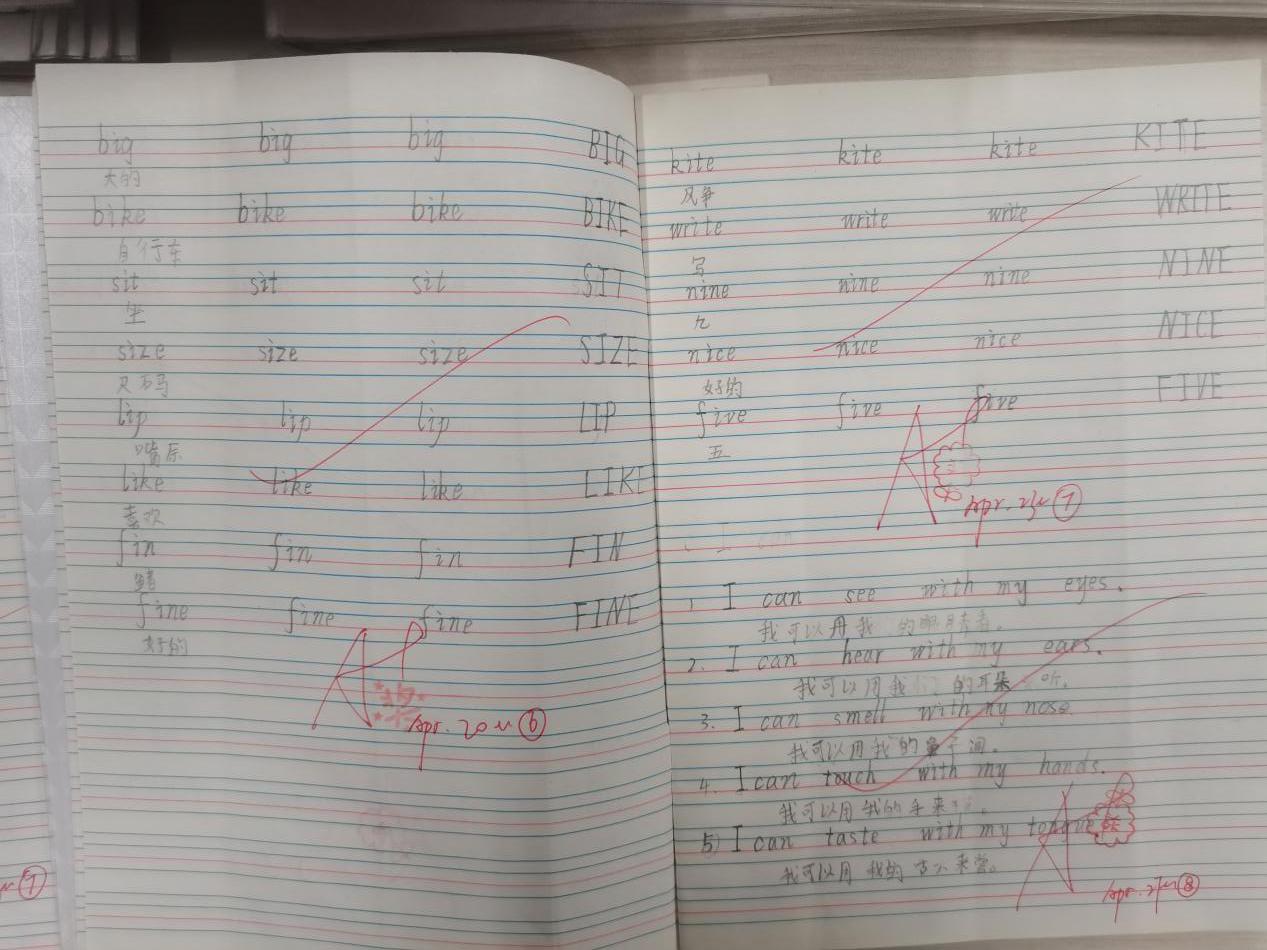 big big big BIG
大的
bike bike bike BIKE
自行车
sit sit sit SIT
坐
size size size SIZE
尺码
lip lip lip LIP
嘴唇
like like like LIKE
喜欢
fin fin fin FIN
fine fine fine FINE
好的
Apr. 20th ⑥
kite kite kite KITE
风争
write write write WRITE
写
nine nine nine NINE
九
nice nice nice NICE
好的
five five five FIVE
五
Apr. ⑦
I can
1 I can see with my eyes.
我可以用我的眼睛看。
2. I can hear with my ears.
我可以用我们的耳朵听。
3. I can smell with my nose.
我可以用我的鼻子闻。
4. I can touch with my hands.
我可以用我的手来
5) I can taste with my tongue
我可以用我的 来尝。
Apr. ⑧